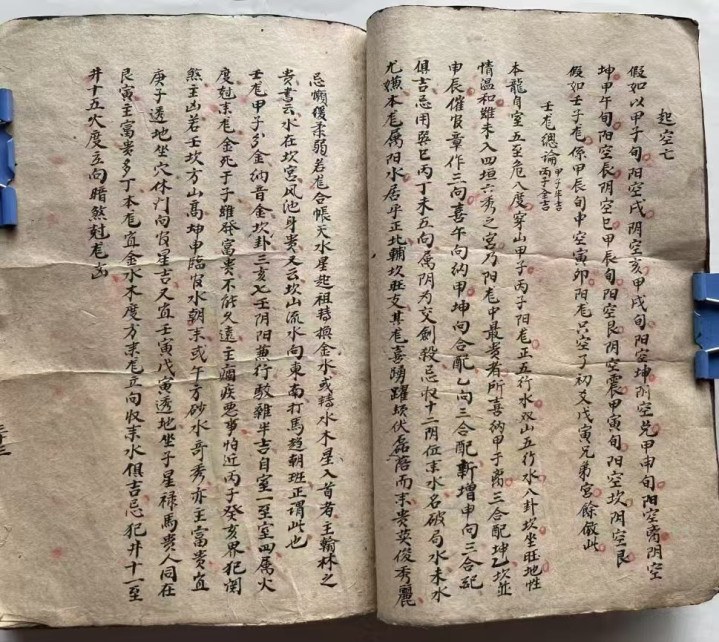 起空亡
假如以甲子旬阳空戌阴空亥甲戌旬阳空坤阴空兑甲申旬阳空离阴空
坤甲午旬阳空辰阴空巳甲辰旬阳空艮阴空震甲寅旬阳空坎阴空艮
假如壬子龙係甲辰旬中空寅卯阳龙只空了初爻戊寅兄弟宫餘倣此
壬龙總論甲子半吉丙子全吉
本龍自室五至危八度穿山甲子丙子阳龙正五行水双山五行水八卦坎坐旺地性
情温和雖未入四垣六秀之宮乃阳龙中最贵者所喜纳甲子离三合配坤乙坎並
申辰催官章作三向喜午向纳甲坤向合配乙向三合配新增申向三合配
俱吉忌用巽巳丙丁未五向属阴为交劍殺忌收十二阴位来水名破局水未水
尤嫌本龙属阳水居乎正北輔坎旺支其龙喜踴躍坎伏磊落而来贵英俊秀麗
忌懶缓柔弱若龙合帳天水星起祖轉換金水或轉水木星入首者主翰林之
贵書云水在坎宮风池身贵又云坎山流水向東南打馬趋朝班正谓此也
壬龙甲子分金纳音金坎卦三亥七壬阴阳兼行駁雜半吉自室一至室四属火
度尅来龙金死于子雖發富贵不能久遠主瘤疾恶事怕近丙子癸亥界犯関
煞主凶若壬坎方山高坤申臨官水朝来或午方砂水奇秀亦主富贵宜
庚子透地坐穴休门向官星吉又宜壬寅戊寅透地坐子星禄馬贵人同在
艮寅主富贵多丁本龙宜金水木度方来龙立向收来水俱吉忌犯井十一至
井十五火度立向暗煞尅龙凶